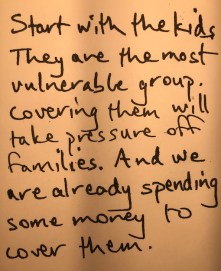 Start with the kids
They are the most
vulnerable group.
Covering them will
take pressure off
families. And we
are already spending
some money to
cover them.